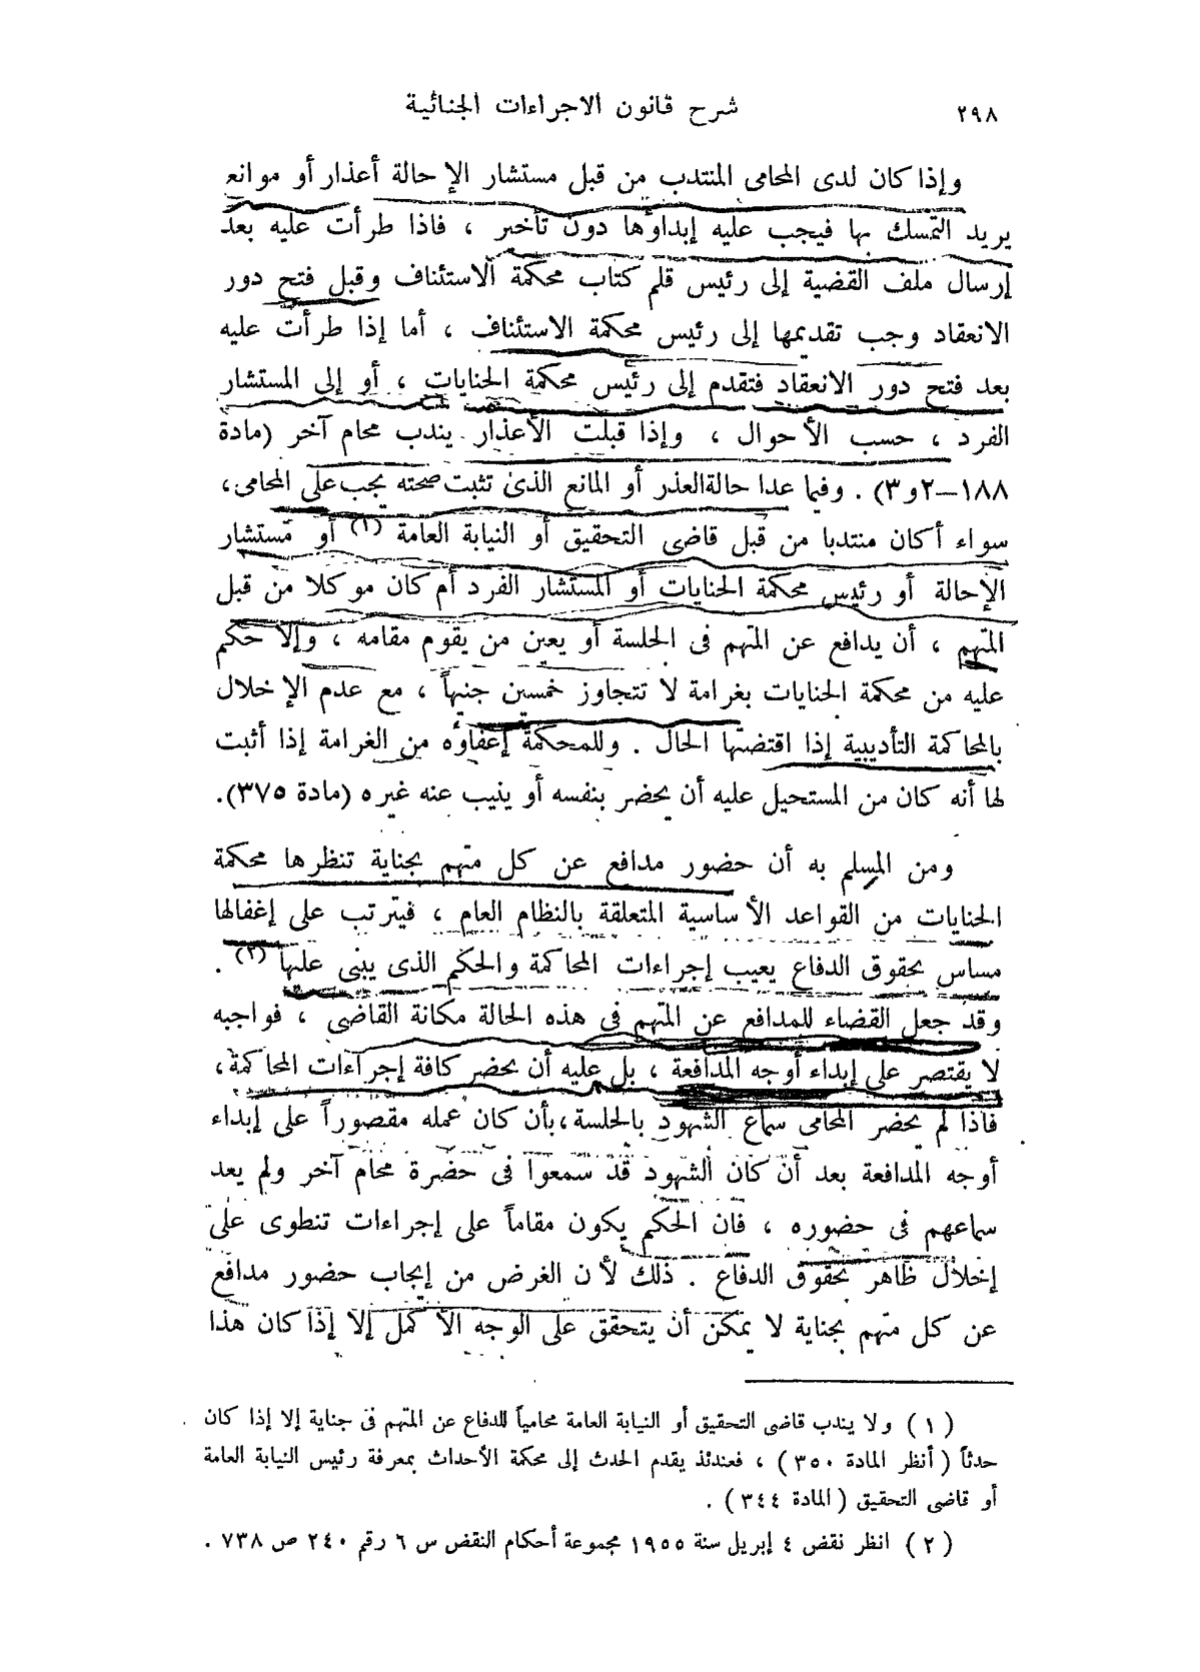 ٢٩٨
شرح قانون الاجراءات الجنائية
وإذا كان لدى المحامى المنتدب من قبل مستشار الإحالة أعذار أو موانع
يريد التمسك بها فيجب عليه إبداؤها دون تأخير ، فاذا طرأت عليه بعد
إرسال ملف القضية إلى رئيس قلم كتاب محكمة الاستئناف وقبل فتح دور
الانعقاد وجب تقديمها إلى رئيس محكمة الاستئناف ، أما إذا طرأت عليه
بعد فتح دور الانعقاد فتقدم إلى رئيس محكمة الجنايات ، أو إلى المستشار
الفرد ، حسب الأحوال ، وإذا قبلت الأعذار يندب محام آخر (مادة
١٨٨–٢و٣) . وفيما عدا حالة العذر أو المانع الذى تثبت صحته يجب على المحامى ،
سواء أكان منتدبا من قبل قاضى التحقيق أو النيابة العامة (١) أو مستشار
الإحالة أو رئيس محكمة الجنايات أو المستشار الفرد أم كان موكلا من قبل
المتهم ، أن يدافع عن المتهم فى الجلسة أو يعين من يقوم مقامه ، وإلا حكم
عليه من محكمة الجنايات بغرامة لا تتجاوز خمسين جنيهاً ، مع عدم الإخلال
بالمحاكمة التأديبية إذا اقتضتها الحال . وللمحكمة إعفاؤه من الغرامة إذا أثبت
لها أنه كان من المستحيل عليه أن يحضر بنفسه أو ينيب عنه غيره (مادة ٣٧٥).
ومن المسلم به أن حضور مدافع عن كل متهم بجناية تنظرها محكمة
الجنايات من القواعد الأساسية المتعلقة بالنظام العام ، فيترتب على إغفالها
مساس بحقوق الدفاع يعيب إجراءات المحاكمة والحكم الذى يبنى عليها (٢) .
وقد جعل القضاء للمدافع عن المتهم فى هذه الحالة مكانة القاضى ، فواجبه
لا يقتصر على إبداء أوجه المدافعة ، بل عليه أن يحضر كافة إجراءات المحاكمة ،
فاذا لم يحضر المحامى سماع الشهود بالجلسة ، بأن كان عمله مقصوراً على إبداء
أوجه المدافعة بعد أن كان الشهود قد سمعوا فى حضرة محام آخر ولم يعد
سماعهم فى حضوره ، فان الحكم يكون مقاماً على إجراءات تنطوى على
إخلال ظاهر بحقوق الدفاع . ذلك لأن الغرض من إيجاب حضور مدافع
عن كل متهم بجناية لا يمكن أن يتحقق على الوجه الأكمل إلا إذا كان هذا
(١) ولا يندب قاضى التحقيق أو النيابة العامة محامياً للدفاع عن المتهم فى جناية إلا إذا كان
حدثاً (أنظر المادة ٣٥٠) ، فعندئذ يقدم الحدث إلى محكمة الأحداث بمعرفة رئيس النيابة العامة
أو قاضى التحقيق (المادة ٣٤٤) .
(٢) انظر نقض ٤ إبريل سنة ١٩٥٥ مجموعة أحكام النقض س ٦ رقم ٢٤٠ ص ٧٣٨ .